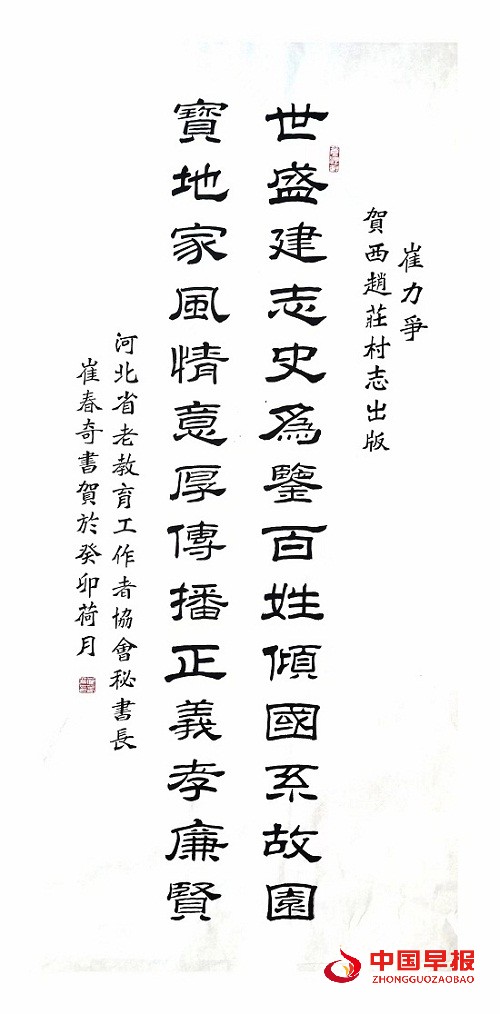 崔力爭
賀西趙莊村志出版
世盛建志史爲鑒百姓傾國系故園
寶地家風情意厚傳播正義孝廉賢
河北省老教育工作者協會秘書長
崔春奇書賀於癸卯荷月
中国早报
ZHONGGUOZAOBAO